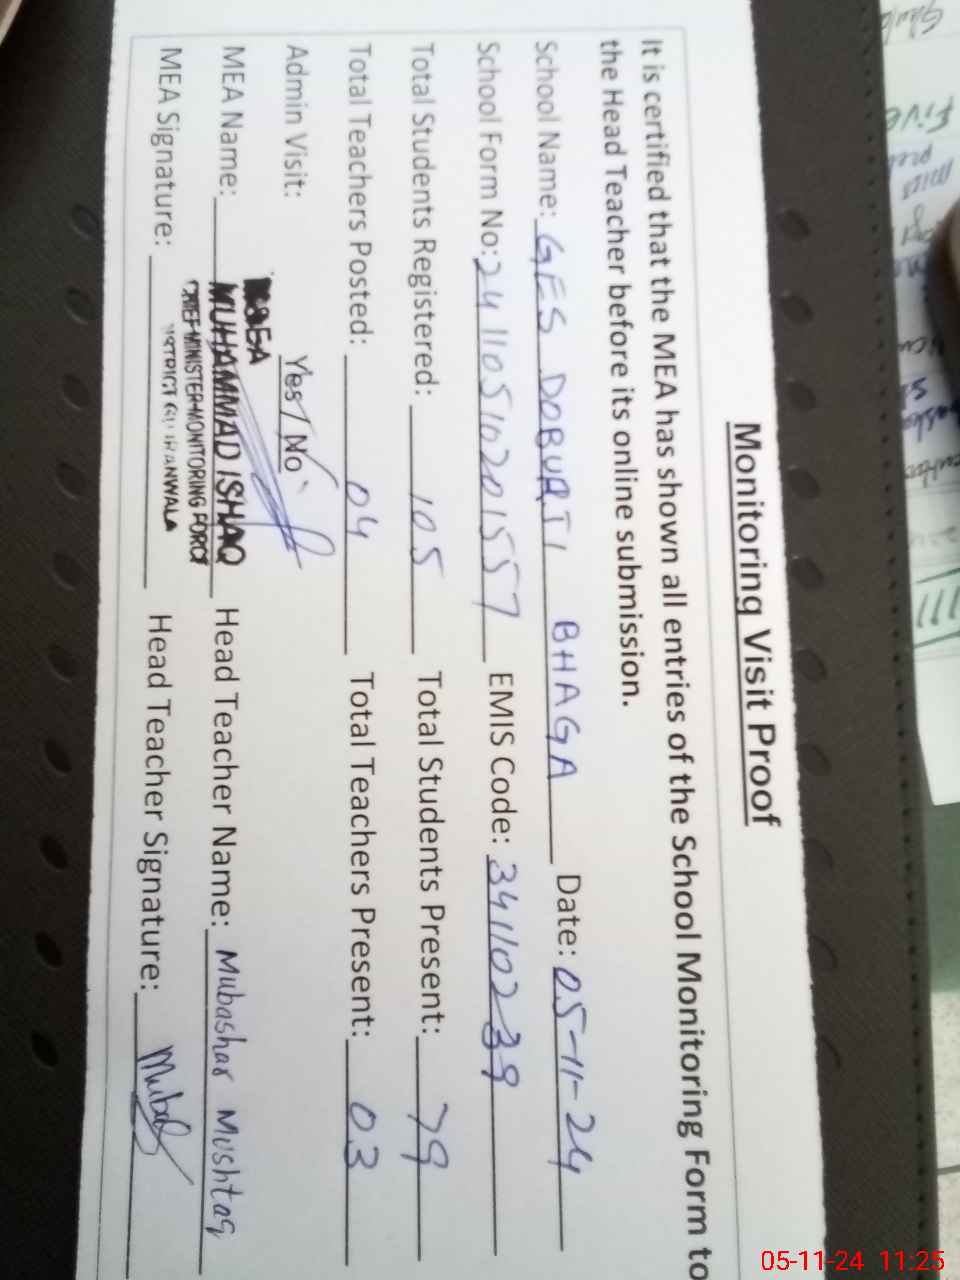 Monitoring Visit Proof
It is certified that the MEA has shown all entries of the School Monitoring Form to
the Head Teacher before its online submission.
School Name: GES DOBURJI BHAGA Date: 05-11-24
School Form No: 2411051020157 EMIS Code: 34110239
Total Students Registered: 105 Total Students Present: 79
Total Teachers Posted: 04 Total Teachers Present: 03
Admin Visit: Yes / No
MEA
MEA Name: MUHAMMAD ISHAQ Head Teacher Name: Mubashar Mushtaq
CHIEF MINISTER MONITORING FORCE
MEA Signature: DISTRICT GUJRANWALA Head Teacher Signature:
05-11-24 11:25